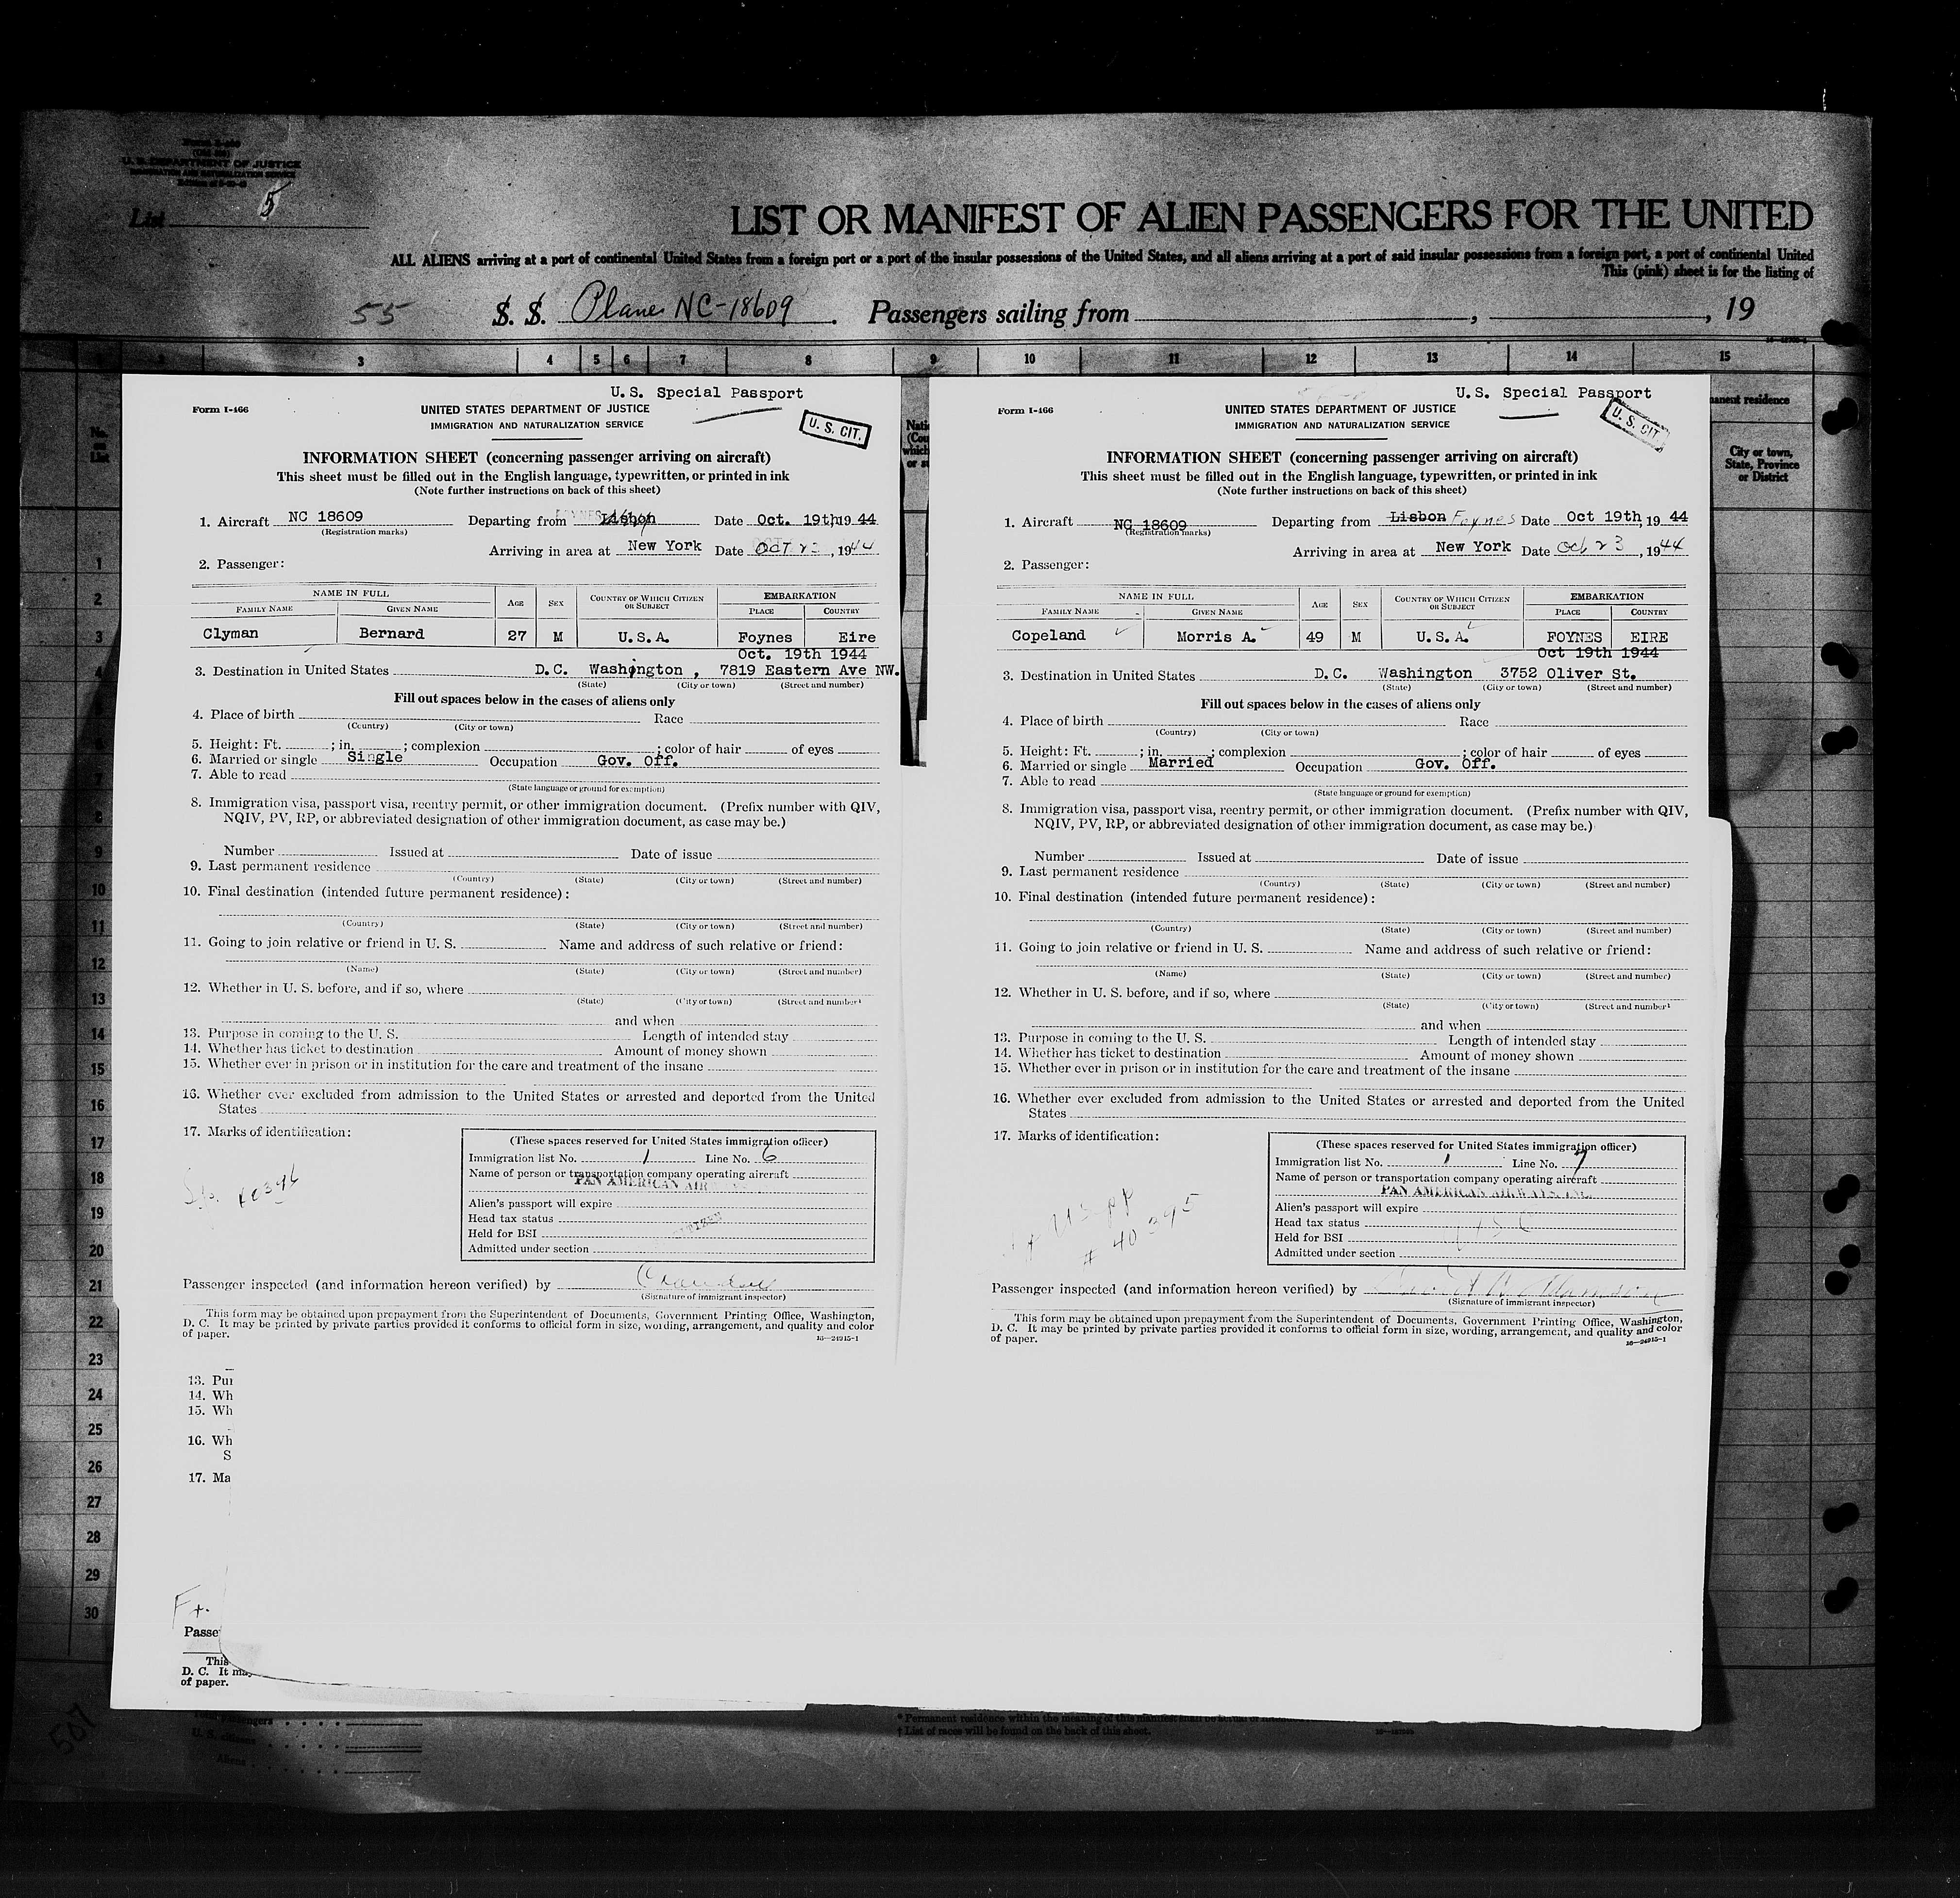 U. S. DEPARTMENT OF JUSTICE
IMMIGRATION AND NATURALIZATION SERVICE
List 5
LIST OR MANIFEST OF ALIEN PASSENGERS FOR THE UNITED
ALL ALIENS arriving at a port of continental United States from a foreign port or a port of the insular possessions of the United States, and all aliens arriving at a port of said insular possessions from a foreign port, a port of continental United
This (pink) sheet is for the listing of
55 S. S. Plane NC-18609. Passengers sailing from , , 19
2 3 4 5 6 7 8 9 10 11 12 13 14 15
U.S. Special Passport
Form I-466
UNITED STATES DEPARTMENT OF JUSTICE
IMMIGRATION AND NATURALIZATION SERVICE
U. S. CIT.
INFORMATION SHEET (concerning passenger arriving on aircraft)
This sheet must be filled out in the English language, typewritten, or printed in ink
(Note further instructions on back of this sheet)
1. Aircraft NC 18609 Departing from FOYNES Lisbon Date Oct. 19th 19 44
(Registration marks)
Arriving in area at New York Date OCT 23, 1944
2. Passenger:
NAME IN FULL AGE SEX COUNTRY OF WHICH CITIZEN OR SUBJECT EMBARKATION
FAMILY NAME GIVEN NAME PLACE COUNTRY
Clyman Bernard 27 M U.S.A. Foynes Eire
Oct. 19th 1944
3. Destination in United States D.C. Washington , 7819 Eastern Ave NW.
(State) (City or town) (Street and number)
Fill out spaces below in the cases of aliens only
4. Place of birth Race
(Country) (City or town)
5. Height: Ft. ; in. ; complexion ; color of hair of eyes
6. Married or single Single Occupation Gov. Off.
7. Able to read
(State language or ground for exemption)
8. Immigration visa, passport visa, reentry permit, or other immigration document. (Prefix number with QIV,
NQIV, PV, RP, or abbreviated designation of other immigration document, as case may be.)
Number Issued at Date of issue
9. Last permanent residence
(Country) (State) (City or town) (Street and number)
10. Final destination (intended future permanent residence):
(Country) (State) (City or town) (Street and number)
11. Going to join relative or friend in U. S. Name and address of such relative or friend:
(Name) (State) (City or town) (Street and number)
12. Whether in U. S. before, and if so, where
(State) (City or town) (Street and number)
and when
13. Purpose in coming to the U. S. Length of intended stay
14. Whether has ticket to destination Amount of money shown
15. Whether ever in prison or in institution for the care and treatment of the insane
16. Whether ever excluded from admission to the United States or arrested and deported from the United
States
17. Marks of identification:
(These spaces reserved for United States immigration officer)
Immigration list No. 1 Line No. 6
Name of person or transportation company operating aircraft
PAN AMERICAN AIR
Alien's passport will expire
Head tax status
Held for BSI
Admitted under section
40396
Passenger inspected (and information hereon verified) by
(Signature of immigrant inspector)
This form may be obtained upon prepayment from the Superintendent of Documents, Government Printing Office, Washington,
D. C. It may be printed by private parties provided it conforms to official form in size, wording, arrangement, and quality and color
of paper.
16—24915-1
13. Pur
14. Wh
15. Wh
16. Wh
S
17. Ma
Passe
This
D. C. It may
of paper.
U.S. Special Passport
Form I-466
UNITED STATES DEPARTMENT OF JUSTICE
IMMIGRATION AND NATURALIZATION SERVICE
U. S. CIT.
INFORMATION SHEET (concerning passenger arriving on aircraft)
This sheet must be filled out in the English language, typewritten, or printed in ink
(Note further instructions on back of this sheet)
1. Aircraft NC 18609 Departing from Lisbon Foynes Date Oct 19th 19 44
(Registration marks)
Arriving in area at New York Date Oct 23, 1944
2. Passenger:
NAME IN FULL AGE SEX COUNTRY OF WHICH CITIZEN OR SUBJECT EMBARKATION
FAMILY NAME GIVEN NAME PLACE COUNTRY
Copeland Morris A. 49 M U.S.A. FOYNES EIRE
Oct 19th 1944
3. Destination in United States D.C. Washington 3752 Oliver St.
(State) (City or town) (Street and number)
Fill out spaces below in the cases of aliens only
4. Place of birth Race
(Country) (City or town)
5. Height: Ft. ; in. ; complexion ; color of hair of eyes
6. Married or single Married Occupation Gov. Off.
7. Able to read
(State language or ground for exemption)
8. Immigration visa, passport visa, reentry permit, or other immigration document. (Prefix number with QIV,
NQIV, PV, RP, or abbreviated designation of other immigration document, as case may be.)
Number Issued at Date of issue
9. Last permanent residence
(Country) (State) (City or town) (Street and number)
10. Final destination (intended future permanent residence):
(Country) (State) (City or town) (Street and number)
11. Going to join relative or friend in U. S. Name and address of such relative or friend:
(Name) (State) (City or town) (Street and number)
12. Whether in U. S. before, and if so, where
(State) (City or town) (Street and number)
and when
13. Purpose in coming to the U. S. Length of intended stay
14. Whether has ticket to destination Amount of money shown
15. Whether ever in prison or in institution for the care and treatment of the insane
16. Whether ever excluded from admission to the United States or arrested and deported from the United
States
17. Marks of identification:
(These spaces reserved for United States immigration officer)
Immigration list No. 1 Line No. 7
Name of person or transportation company operating aircraft
PAN AMERICAN AIRWAYS, INC.
Alien's passport will expire
Head tax status
Held for BSI
Admitted under section
# 40395
Passenger inspected (and information hereon verified) by
(Signature of immigrant inspector)
This form may be obtained upon prepayment from the Superintendent of Documents, Government Printing Office, Washington,
D. C. It may be printed by private parties provided it conforms to official form in size, wording, arrangement, and quality and color
of paper.
16—24915-1
manent residence
City or town,
State, Province
or District
1
2
3
4
9
10
11
12
13
14
15
16
17
18
19
20
21
22
23
24
25
26
27
28
29
30
507
U. S. citizens
Aliens
† List of races will be found on the back of this sheet.